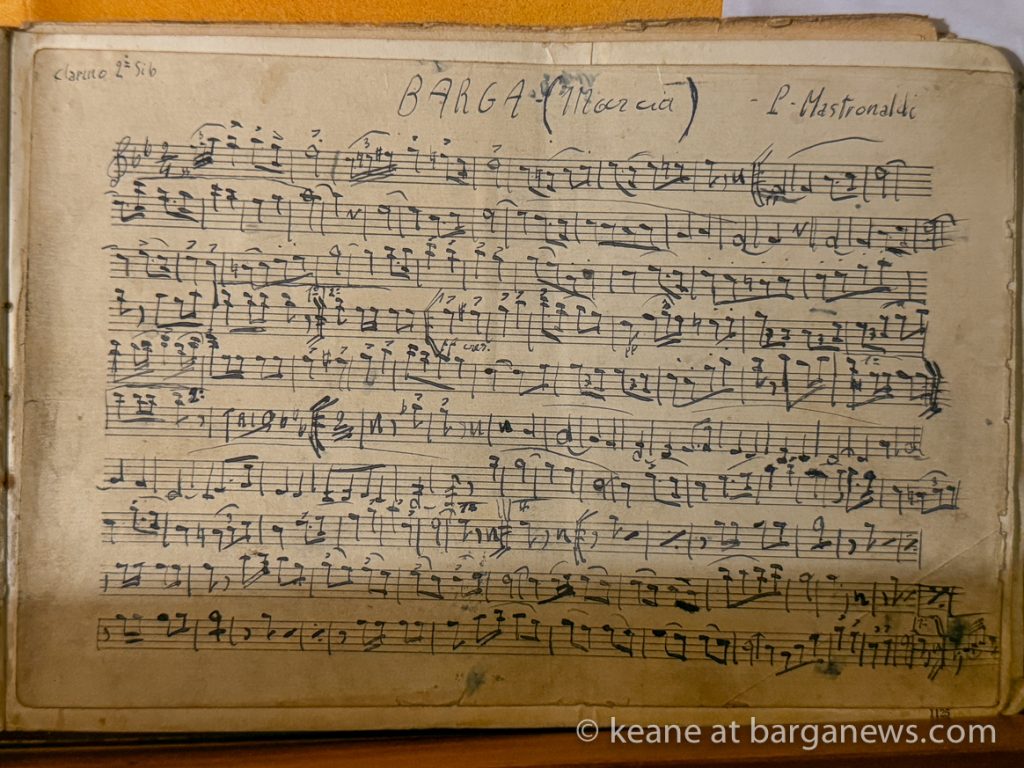 Clarino 2º Sib
BARGA - (Marcia) - P. Mastronaldi
ff cres.
1125
© keane at barganews.com